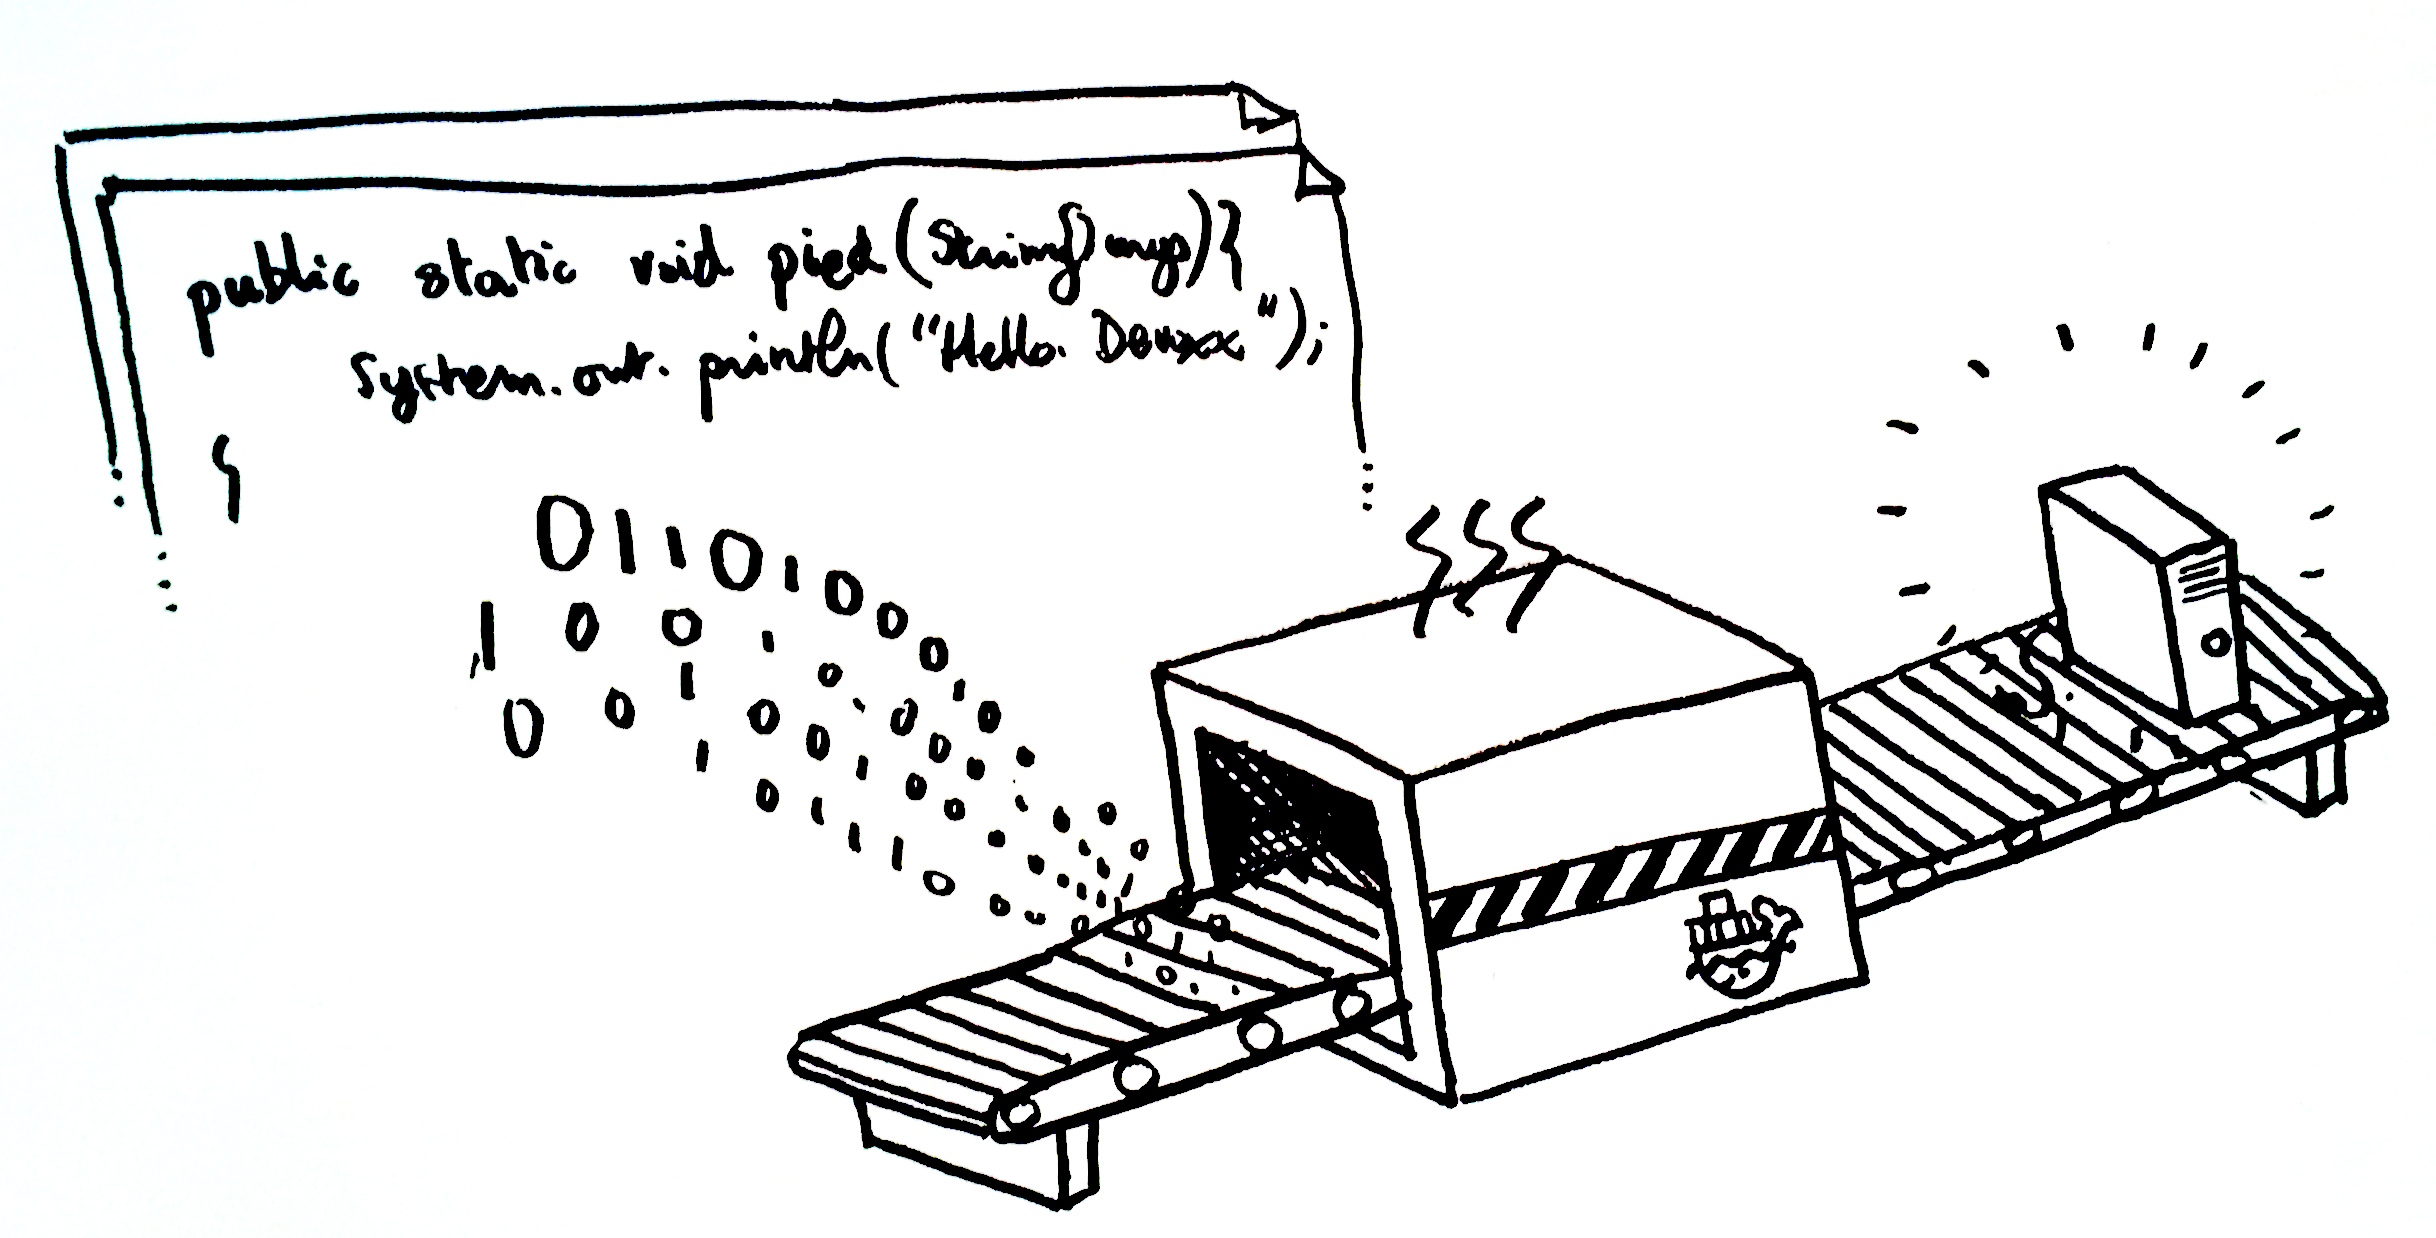 public static void pied(String[] args){
System.out.println("Hello. Devoxx");
}
01101000
100
00